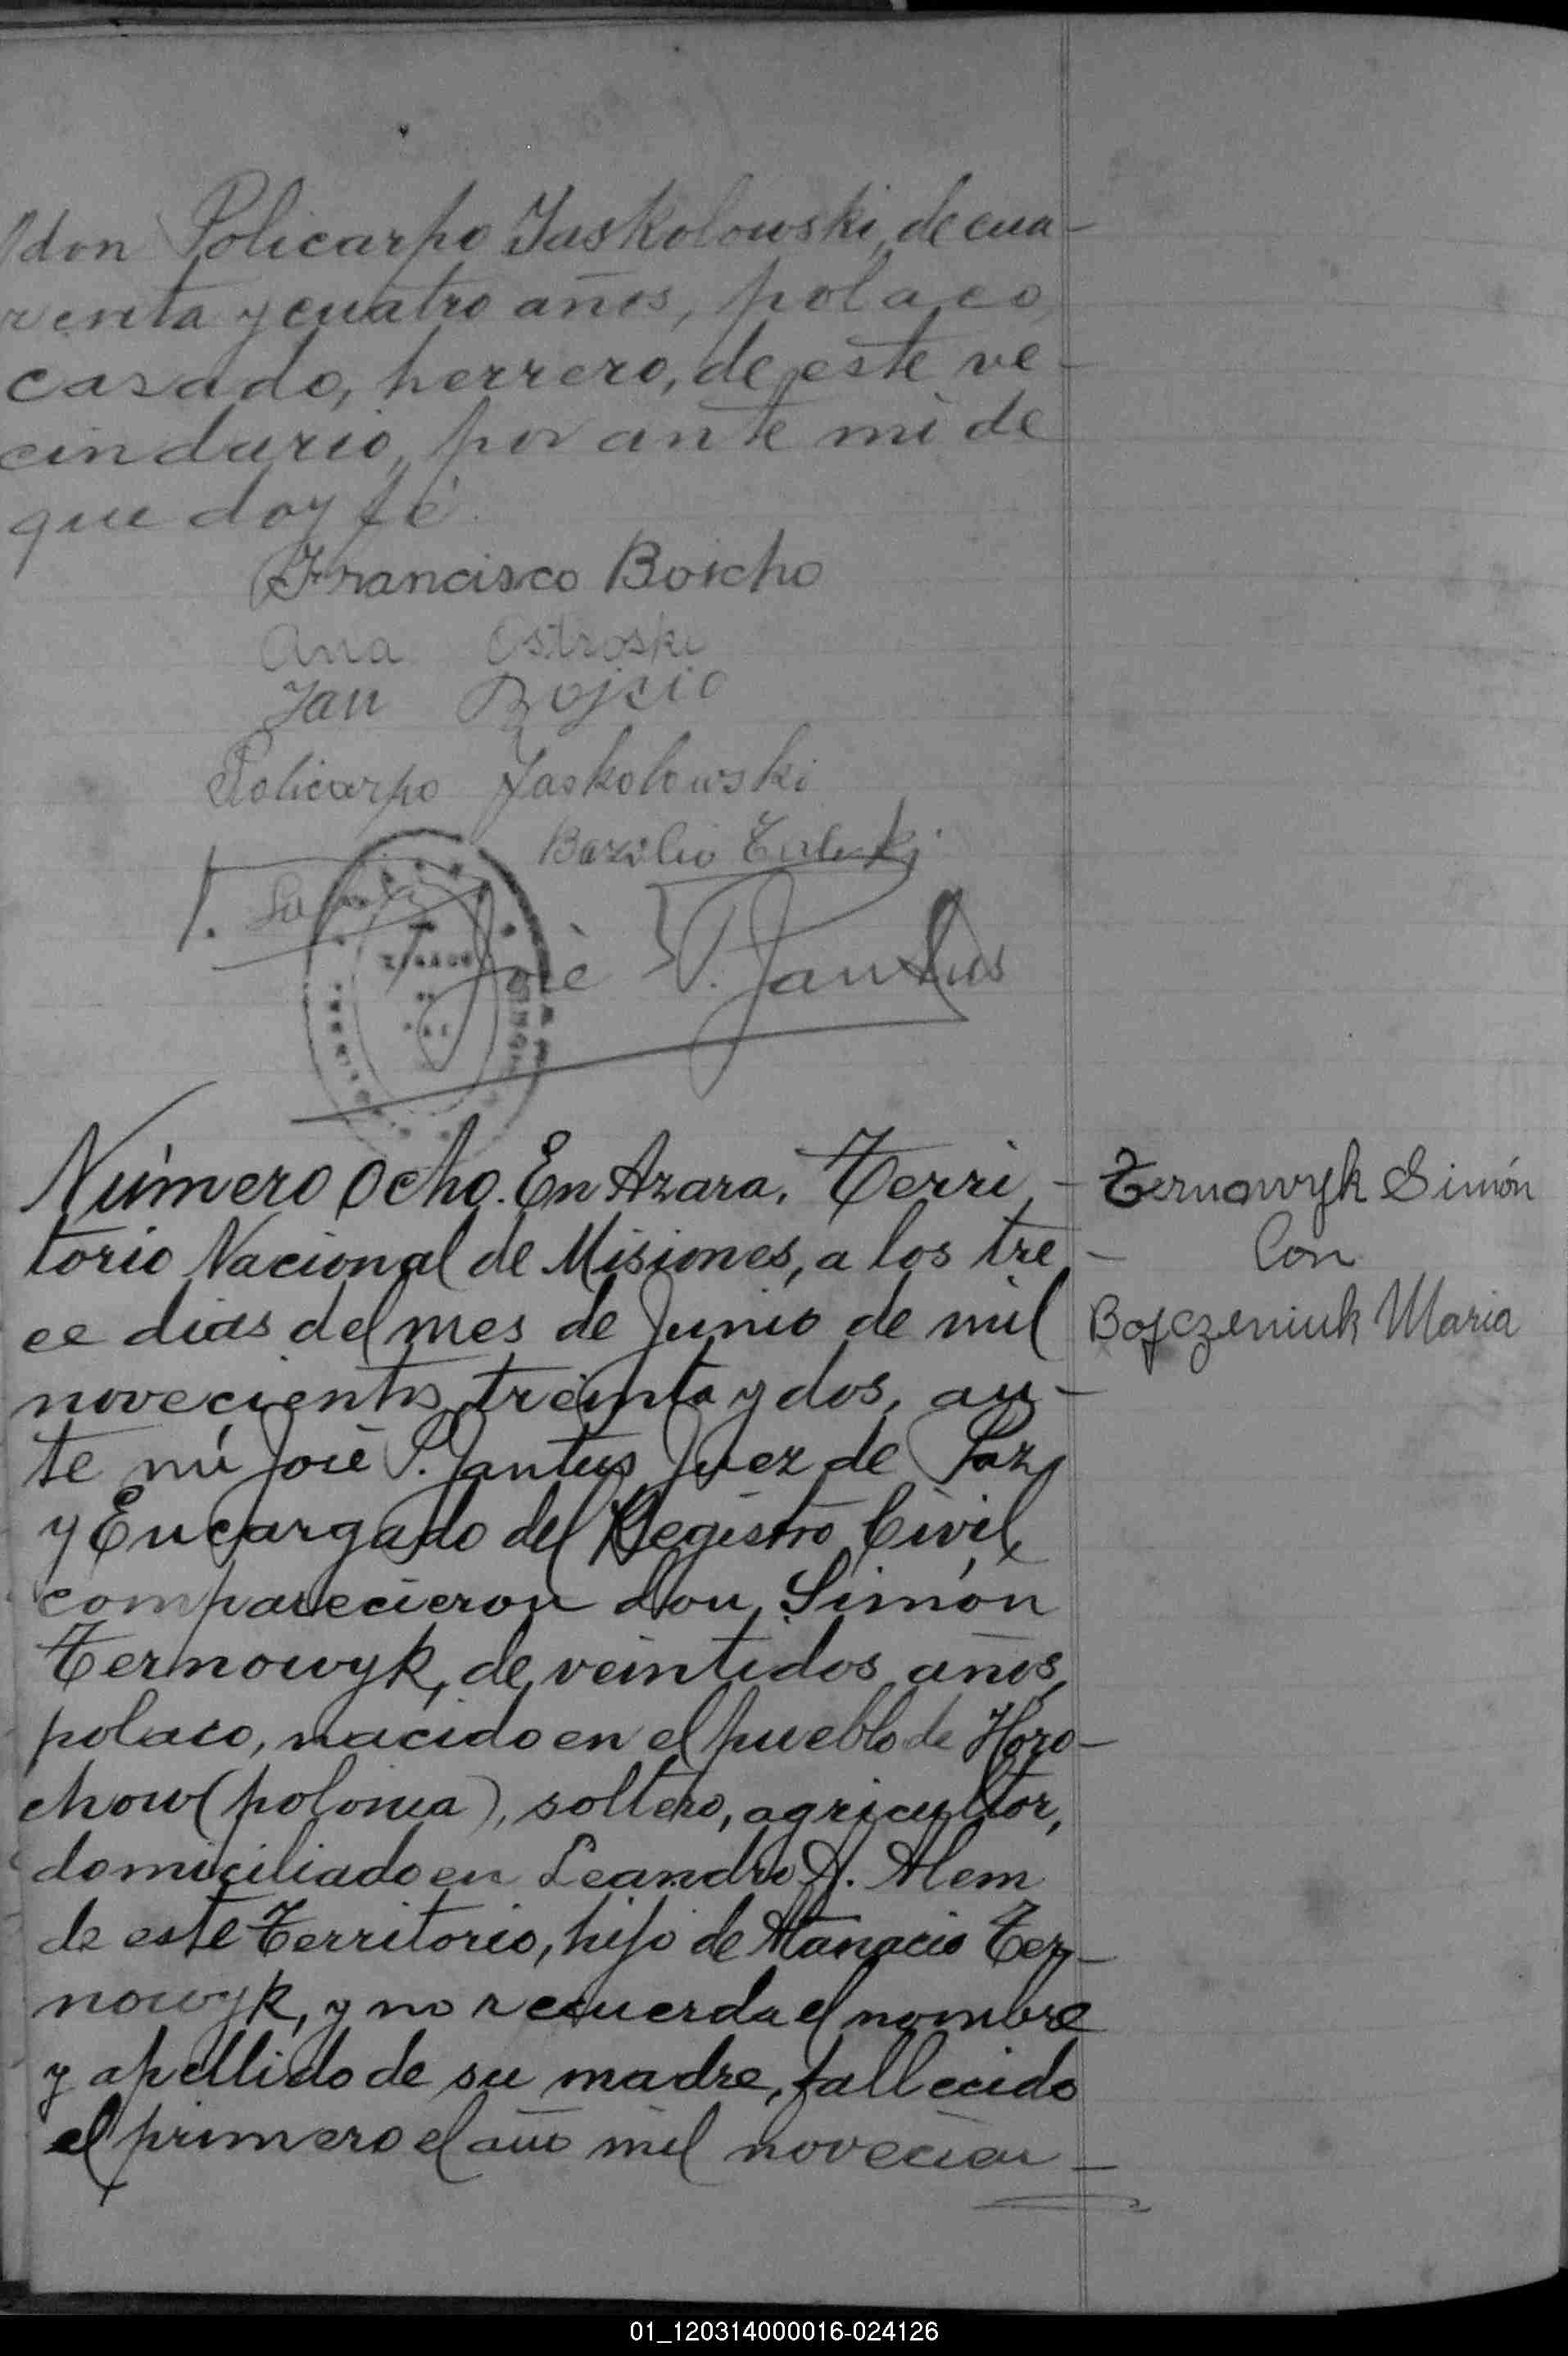 don Policarpo Jaskolowski, de cua-
renta y cuatro años, polaco,
casado, herrero, de este ve-
cindario, por ante mi de
que doy fé.
Francisco Boicho
Ana Ostroski
Jan Bojcio
Policarpo Jaskolowski
Bazilio
José P. Jantus
Número ocho. En Azara, Terri-
torio Nacional de Misiones, a los tre-
ce dias del mes de Junio de mil
novecientos treinta y dos, an-
te mi José P. Jantus Juez de Paz
y Encargado del Registro Civil,
comparecieron don Simón
Ternowyk, de veintidos años,
polaco, nacido en el pueblo de Horo-
chow (polonia), soltero, agricultor,
domiciliado en Leandro A. Alem
de este Territorio, hijo de Atanacio Ter-
nowyk, y no recuerda el nombre
y apellido de su madre, fallecido
el primero el año mil novecien-
Ternowyk Simón
Con
Bojczeniuk Maria
01_120314000016-024126